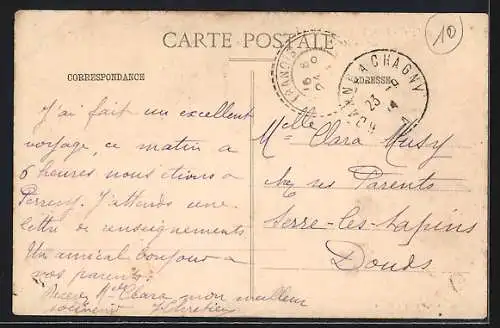 10
CARTE POSTALE
CORRESPONDANCE
ADRESSE
A CHAGNY
23
14
J'ai fait un excellent
voyage, ce matin a
6 heures nous étions a
J'attends une
lettre de renseignements
Un amical bonjour a
vos parents.
Recevez Mlle Clara mon meilleur
Melle Clara Musy
chez ses Parents
Serre-les-Sapins
Doubs